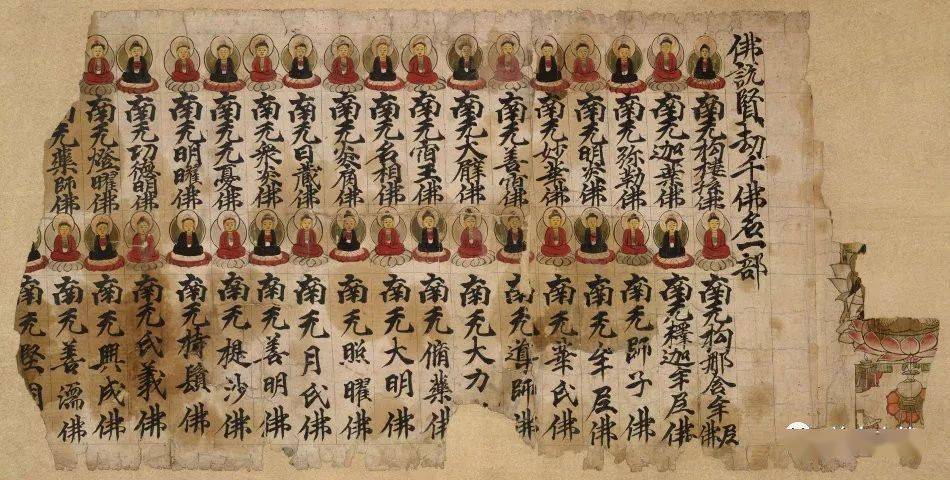 佛說賢劫千佛名一部
南无拘樓孫佛
南无拘那含牟尼佛
南无迦葉佛
南无釋迦牟尼佛
南无弥勒佛
南无師子佛
南无明炎佛
南无牟尼佛
南无妙華佛
南无華氏佛
南无善宿佛
南无導師佛
南无大臂佛
南无大力佛
南无宿王佛
南无脩藥佛
南无名相佛
南无大明佛
南无炎肩佛
南无照曜佛
南无日藏佛
南无月氏佛
南无衆炎佛
南无善明佛
南无无憂佛
南无提沙佛
南无明曜佛
南无持鬘佛
南无功德明佛
南无氏義佛
南无燈曜佛
南无興成佛
南无藥師佛
南无善濡佛
南无堅